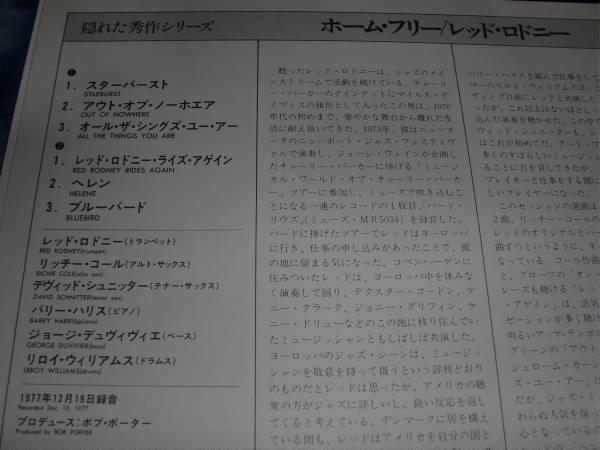 隠れた秀作シリーズ
ホーム・フリー/レッド・ロドニー
❶
1. スターバースト
STARBURST
2. アウト・オブ・ノーホエア
OUT OF NOWHERE
3. オール・ザ・シングズ・ユー・アー
ALL THE THINGS YOU ARE
❷
1. レッド・ロドニー・ライズ・アゲイン
RED RODNEY RIDES AGAIN
2. ヘレン
HELENE
3. ブルーバード
BLUEBIRD
レッド・ロドニー(トランペット)
RED RODNEY(trumpet)
リッチー・コール(アルト・サックス)
RICHIE COLE(alto sax)
デヴィッド・シュニッター(テナー・サックス)
DAVID SCHNITTER(tenor sax)
バリー・ハリス(ピアノ)
BARRY HARRIS(piano)
ジョージ・デュヴィヴィエ(ベース)
GEORGE DUVIVIER(bass)
リロイ・ウィリアムス(ドラムス)
LEROY WILLIAMS(drums)
1977年12月19日録音
Recorded Dec. 19, 1977
プロデュース:ボブ・ポーター
Produced by BOB PORTER
甦ったレッド・ロドニーは、ジャズのメイ
ンストリームで活動を続けている。チャーリ
ー・パーカーのクインテットにマイルス・デ
イヴィスの後任として入ったこの男は、1970
年代の初めまで、華やかな舞台から離れた生
活に耐え抜いてきた。1973年、彼はニューヨ
ークのニューポート・ジャズ・フェスティヴ
ァルで演奏し、ジョージ・ウェインが企画し
たチャーリー・パーカーに捧げる「ミュージ
カル・ワールド・オブ・チャーリー・パーカ
ー」ツアーに参加し、ミューズで吹き込むこ
とになる一連のレコードの1枚目、「バード・
リヴズ」(ミューズ・MR5034)を録音した。
バードに捧げたツアーでレッドはヨーロッパ
に行き、仕事の申し込みがあったことで、彼
の地に留まる気になった。コペンハーゲンに
住みついたレッドは、ヨーロッパ中を休みな
く演奏して回り、デクスター・ゴードン、ケ
ニー・クラーク、ジョニー・グリフィン、ケ
ニー・ドリューなどのこの地に移り住んでい
たミュージッシャンともしばしば共演した。
ヨーロッパのジャズ・シーンは、ミュージッ
シャンを敬意を持って扱うという評判どおり
のものだとレッドは思ったが、アメリカの聴
衆の方がジャズに詳しいし、鋭い反応を返し
てくると考えている。デンマークに居を構え
ている間も、レッドはアメリカを自分の国と
バリー・ハリスと組んで仕事をして
マーのリロイ・ウィリアムスは、こ
ディング以前にレッドと共演した
ったが、これ以上はないほどしっ
込んだ演奏を聴かせた。この中で
ヴィッド・シュニッターも、レッ
はこれが初めてだった。アート・ブ
多くのすばらしいミュージッシ
ることに力を貸してきたが、
ブレイキーと仕事をする間に
しいプレイヤーになった。
このセッションの選曲は、
2曲、リッチー・コールの
レッドのオリジナルとバー
曲ずつというように、すっ
なっている。コール作曲
と、グローフの「オン・
レーズも聴ける「レッ
・アゲイン」は、活気
ゼーションが多く聴け
明るいアップ・テンポ
グリーンの「アウト・
ジェローム・カーン
ズ・ユー・アー」は
だが、ジャズ・ミ
わらぬ人気を保っ
心となっている